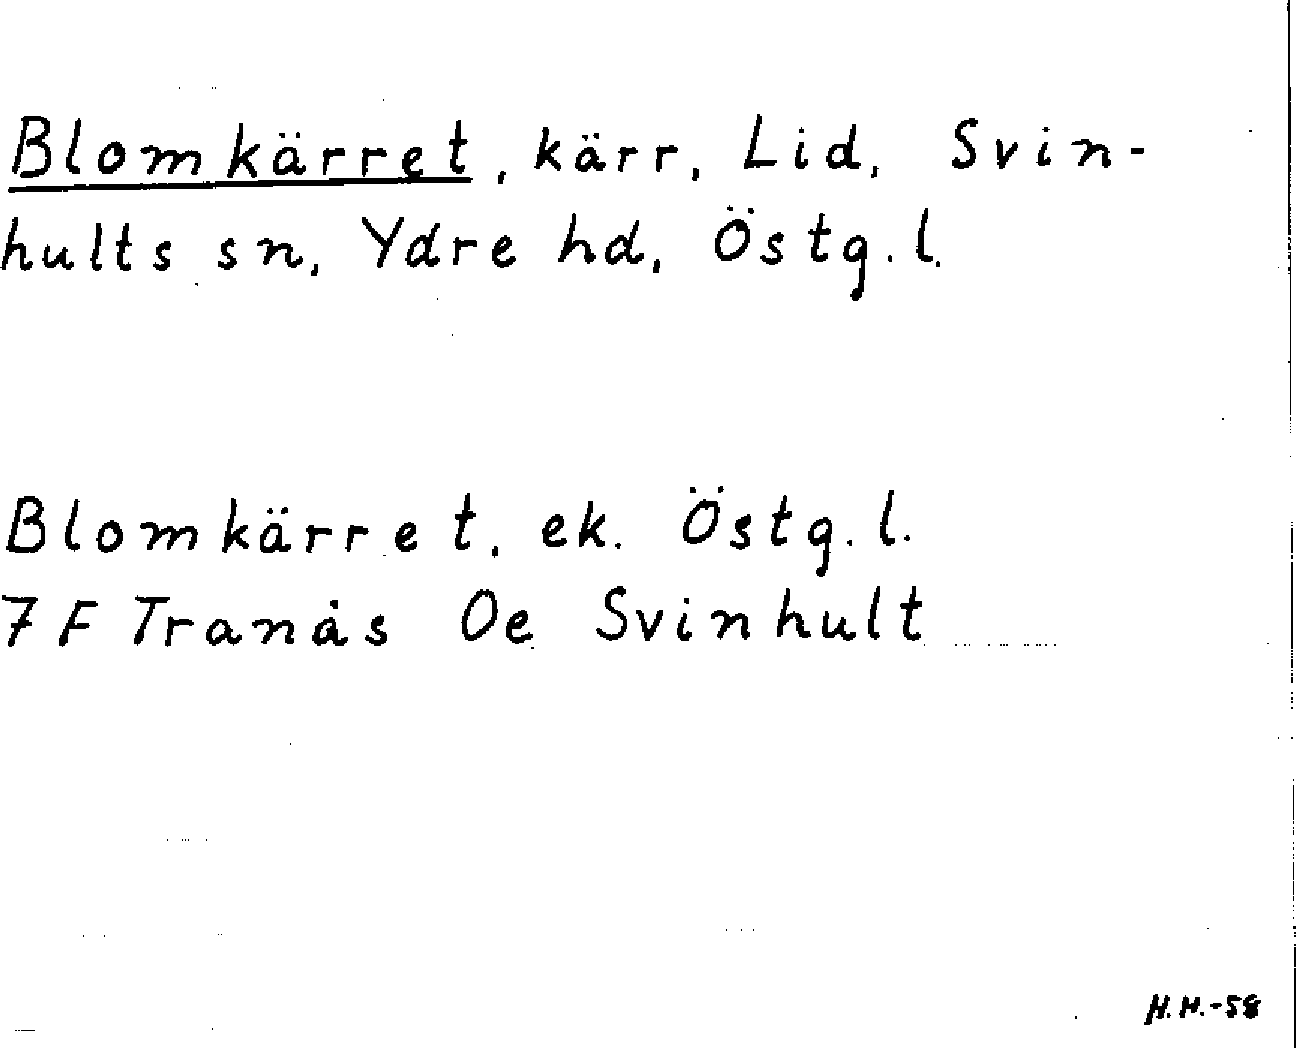 Blomkärret, kärr, Lid, Svin-
hults sn, Ydre hd, Östg.l.
Blomkärret, ek. Östg.l.
7 F Tranås Oe Svinhult
H.H.-58